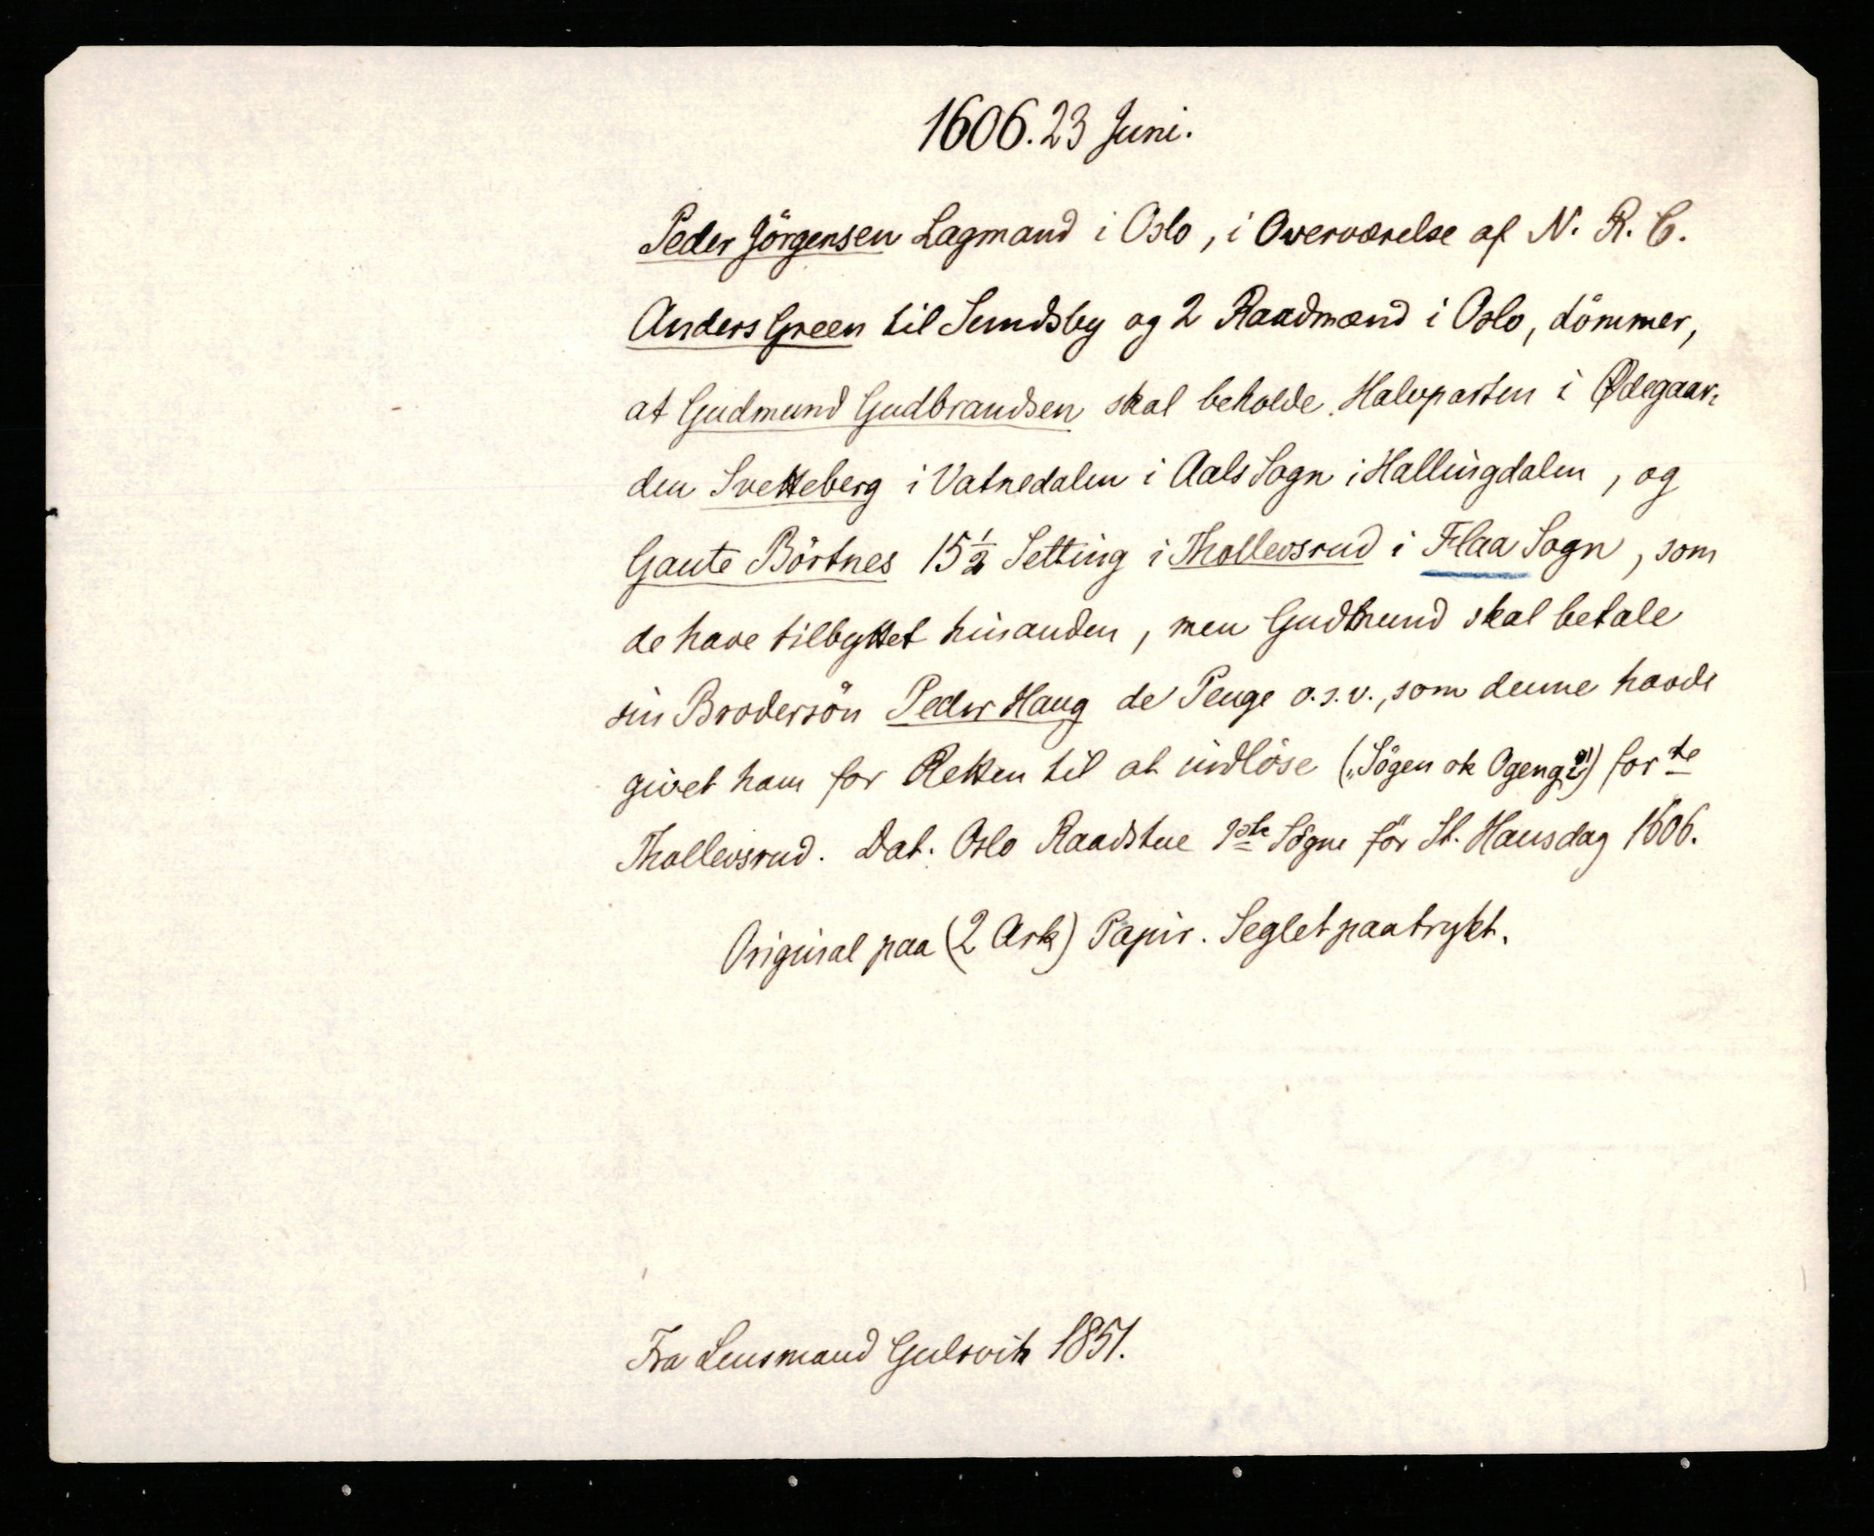 1606. 23 Juni.
Peder Jörgensen Lagmand i Oslo, i Overværelse af N. R. C.
Anders Green til Sundsby og 2 Raadmænd i Oslo, dömmer,
at Gudmund Gudbrandsen skal beholde Halvparten i Ødegaar-
den Svetteberg i Vatnedalen i Aals Sogn i Hallingdalen, og
Gaute Börtnes 15½ Setting i Thollevsrud i Flaa Sogn, som
de have tilbyttet hinanden, men Gudmund skal betale
sin Brodersön Peder Haug de Penge o.s.v., som denne havde
givet ham for Retten til at indlöse („Sögen ok Ogeng") forte
Thollevsrud. Dat. Oslo Raadstue 1ste Sögne för St. Hansdag 1606.
Original paa (2 Ark) Papir. Seglet paatrykt.
Fra Lensmand Gulsvik 1851.